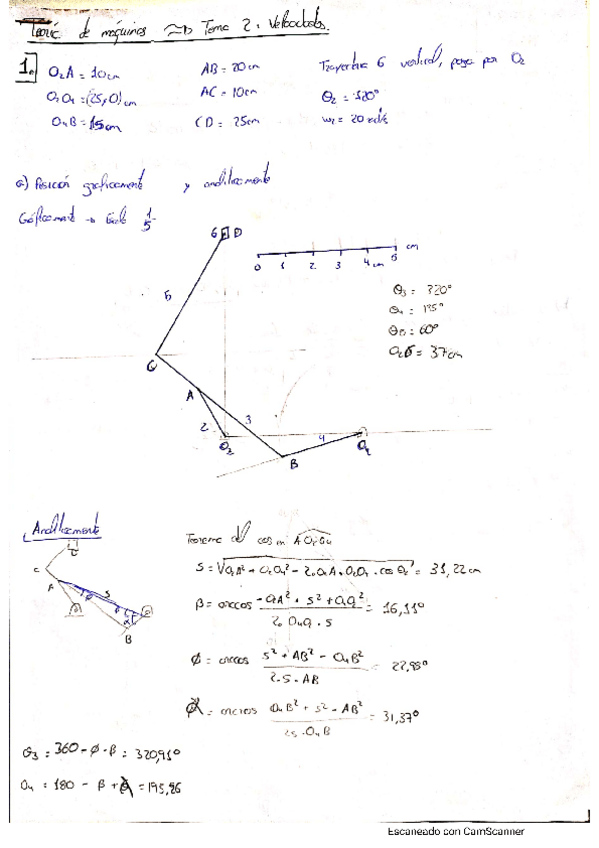 Teoría de máquinas ≈D Tema 2. Velocidades.
1. O₂A = 10cm AB = 20cm Trayectoria 6 vertical, pasa por O₂
O₂O₄ = (25,0)cm AC = 10cm θ₂ = 120°
O₄B = 15cm CD = 25cm ω₂ = 20rad/s
a) Posición graficamente y analiticamente
Gráficamente → Escala 1/5
6 D
cm
0 1 2 3 4cm 5
5
θ₃ = 320°
θ₄ = 195°
θD = 60°
O₂6 = 37cm
C
A
2 3
O₂ 4 O₄
B
Analiticamente
Teorema del cos en AO₂O₄
S = √O₂A² + O₂O₄² - 2·O₂A·O₂O₄·cos θ₂ = 31,22cm
C
A S
B
β = arccos -O₂A² + S² + O₂O₄² / 2·O₂O₄·S = 16,11°
ϕ = arccos S² + AB² - O₄B² / 2·S·AB = 22,98°
= arccos O₄B² + S² - AB² / 2S·O₄B = 31,37°
θ₃ = 360 - ϕ - β = 320,91°
θ₄ = 180 - β + = 195,26
Escaneado con CamScanner